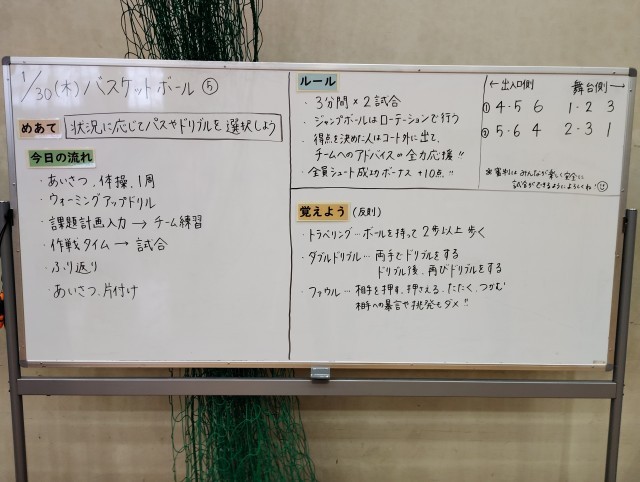 1/30(木) バスケットボール ⑤
めあて 状況に応じてパスやドリブルを選択しよう
今日の流れ
・あいさつ、体操、1周
・ウォーミングアップドリル
・課題計画入力 → チーム練習
・作戦タイム → 試合
・ふり返り
・あいさつ、片付け
ルール
・3分間×2試合
・ジャンプボールはローテーションで行う
・得点を決めた人はコート外に出て、
チームへのアドバイス∞全力応援!!
・全員シュート成功ボーナス +10点!!
←出入口側 舞台側→
① 4・5 6 1・2 3
② 5・6 4 2・3 1
※審判はみんなが楽しく安全に
試合ができるようによろしくね!
覚えよう (反則)
・トラベリング…ボールを持って2歩以上歩く
・ダブルドリブル…両手でドリブルをする
ドリブル後、再びドリブルをする
・ファウル…相手を押す、押さえる、たたく、つかむ
相手への暴言や挑発もダメ!!